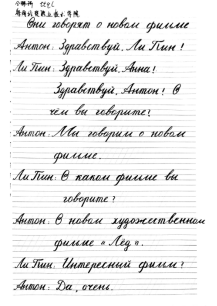 Они говорят о новом фильме
Антон: Здравствуй, Ли Пин!
Ли Пин: Здравствуй, Анна!
Здравствуй, Антон! О
чём вы говорите?
Антон: Мы говорим о новом
фильме.
Ли Пин: О каком фильме вы
говорите?
Антон: О новом художественном
фильме «Лёд».
Ли Пин: Интересный фильм?
Антон: Да, очень.